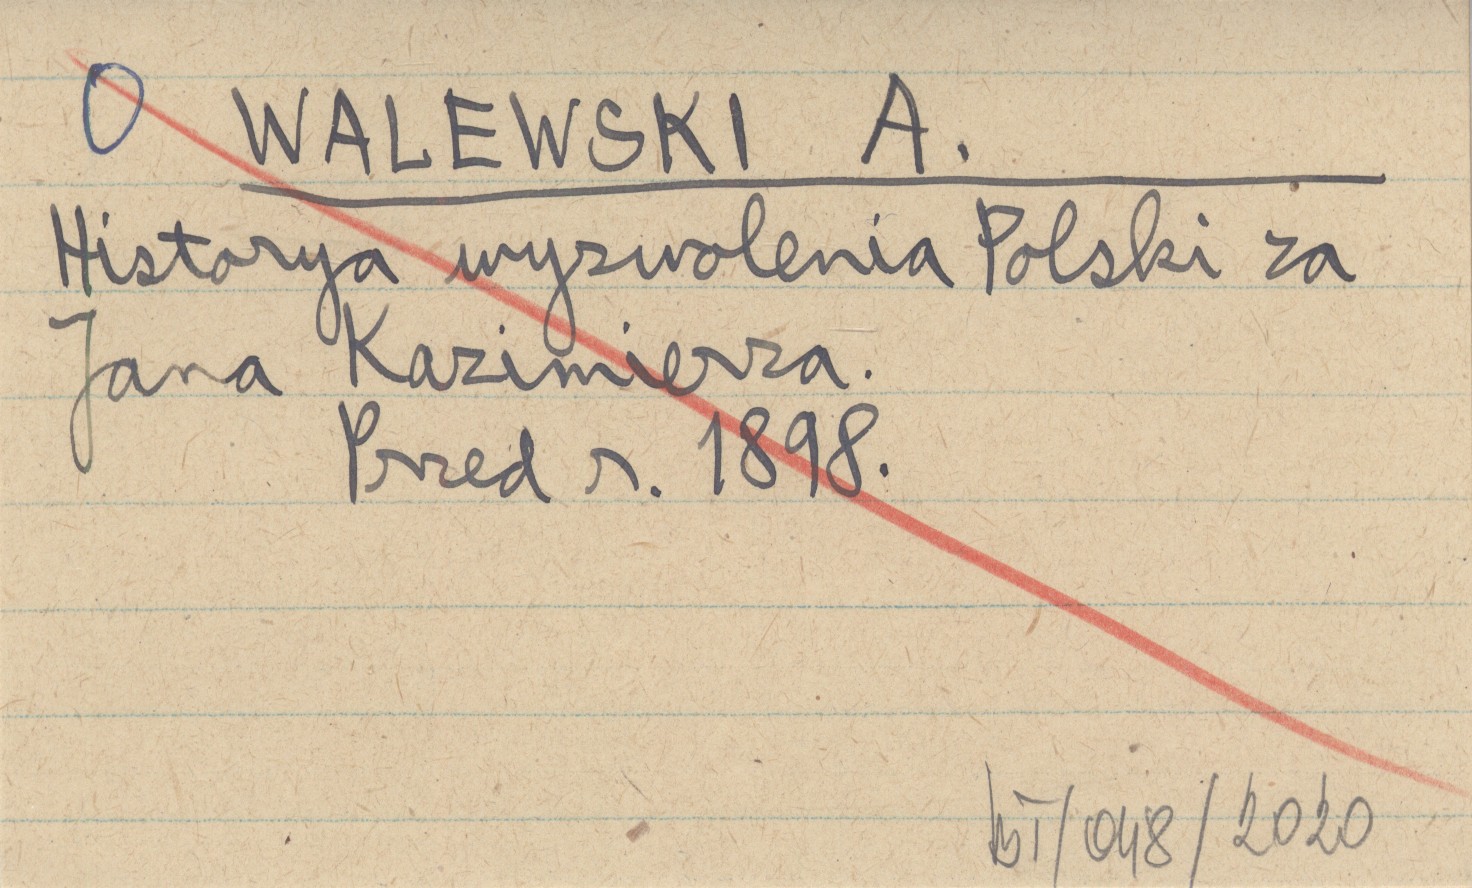 O WALEWSKI A.
Historya wyzwolenia Polski za
Jana Kazimierza.
Przed r. 1898.
/048/2020